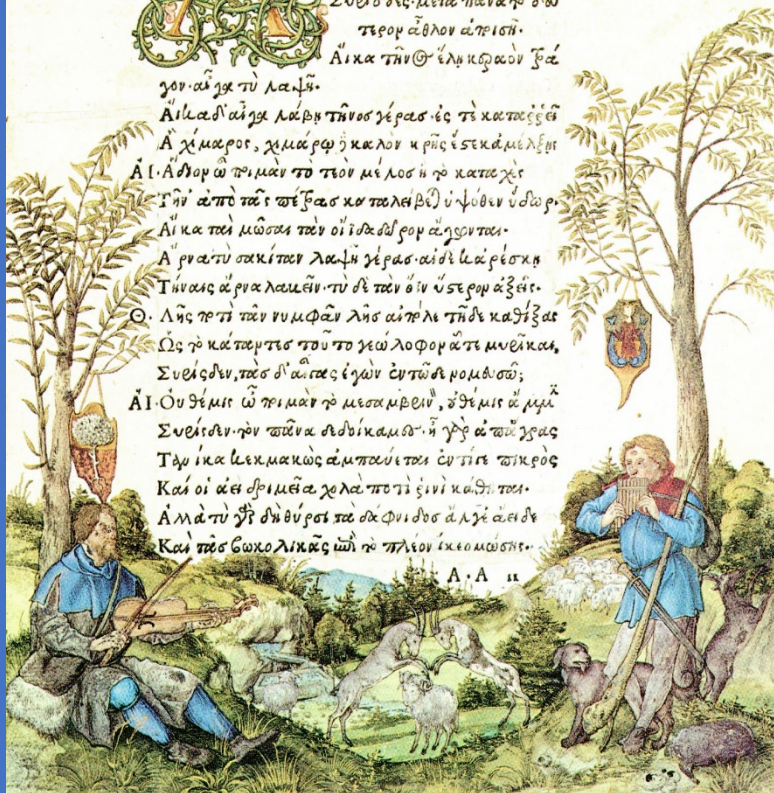 Συρίσδες· μετὰ πᾶνα τὸ δεύ
τερον ἆθλον ἀποισῇ·
Αἴκα τῆνος ἕλῃ κεραὸν τρά
γον· αἶγα τὺ λαψῇ·
Αἴκα δ' αἶγα λάβῃ τῆνος γέρας· ἐς τὲ καταρρεῖ
Ἁ χίμαρος, χιμάρῳ δὲ καλὸν κρῆς ἔστε κ' ἀμέλξῃς
ΑΙ· Ἅδιον ὦ ποιμὰν τὸ τεὸν μέλος ἢ τὸ καταχὲς
Τῆν' ἀπὸ τᾶς πέτρας καταλείβεται ὑψόθεν ὕδωρ·
Αἴκα ταὶ μῶσαι τὰν οἴϊδα δῶρον ἄγωνται·
Ἄρνα τὺ σακίταν λαψῇ γέρας· αἰ δέ κ' ἀρέσκῃ
Τήναις ἄρνα λαβεῖν· τὺ δὲ τὰν ὄϊν ὕστερον ἀξεῖς·
Θ· Λῇς ποτὶ τᾶν νυμφᾶν λῇς αἰπόλε τῇδε καθίξας
Ὡς τὸ κάταντες τοῦτο γεώλοφον ἅτε μυρῖκαι,
Συρίσδεν, τὰς δ' αἶγας ἐγὼν ἐν τῷδε νομευσῶ;
ΑΙ· Οὐ θέμις ὦ ποιμὰν τὸ μεσαμβρινὸν, οὐ θέμις ἄμμιν
Συρίσδεν· τὸν πᾶνα δεδοίκαμες· ἦ γὰρ ἀπ' ἄγρας
Τηνίκα κεκμακὼς ἀμπαύεται ἐντί γε πικρὸς
Καί οἱ ἀεὶ δριμεῖα χολὰ ποτὶ ῥινὶ κάθηται·
Ἀλλὰ τὺ γὰρ δὴ θύρσι τὰ δάφνιδος ἄλγε' ἄειδε
Καὶ τᾶς βωκολικᾶς ἐπὶ τὸ πλέον ἵκεο μώσης·
Α·Α ιι